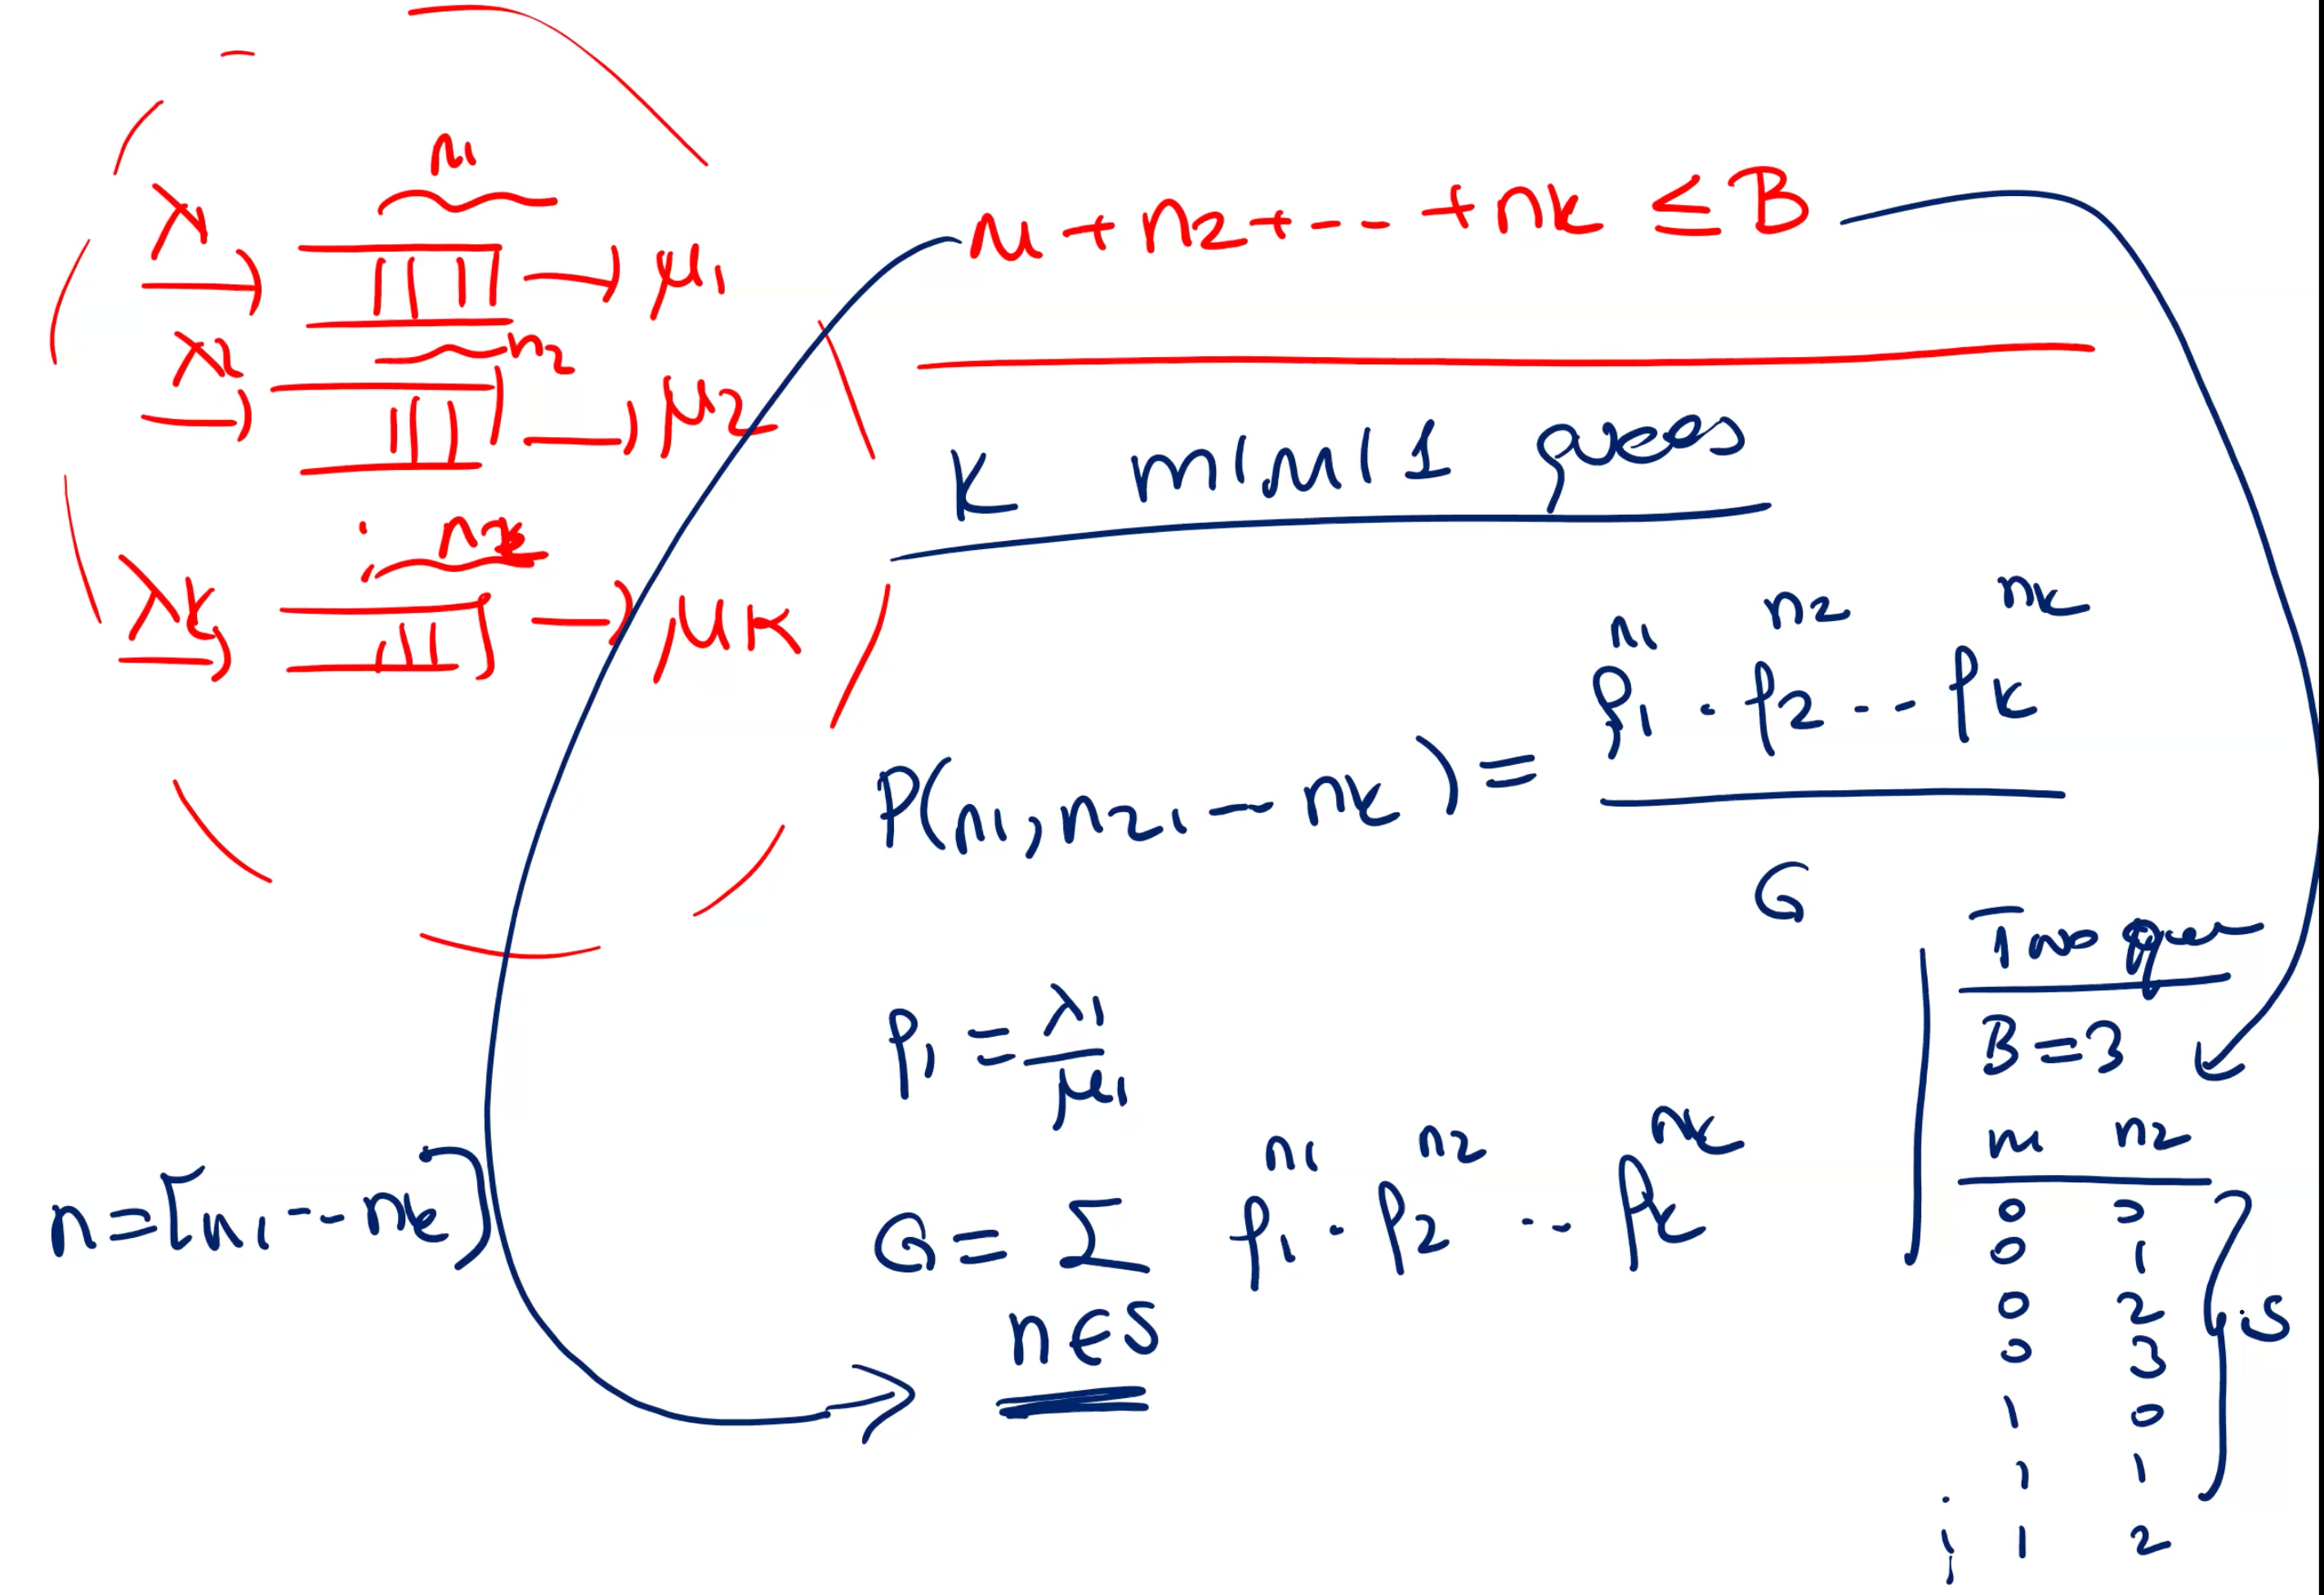 n1
λ1
μ1
n2
λ2
μ2
nk
λk
μk
n1 + n2 + -- + nk ≤ B
K M|M|1 quees
P(n1, n2, -- nk) = ρ1^n1 . ρ2^n2 -- ρk^nk / G
ρ1 = λ1 / μ1
n = [n1 -- nk]
G = Σ ρ1^n1 . ρ2^n2 -- ρk^nk
n ∈ S
Two
B = 3
n1 n2
0 0
0 1
0 2
0 3
1 0
1 1
1 2
is